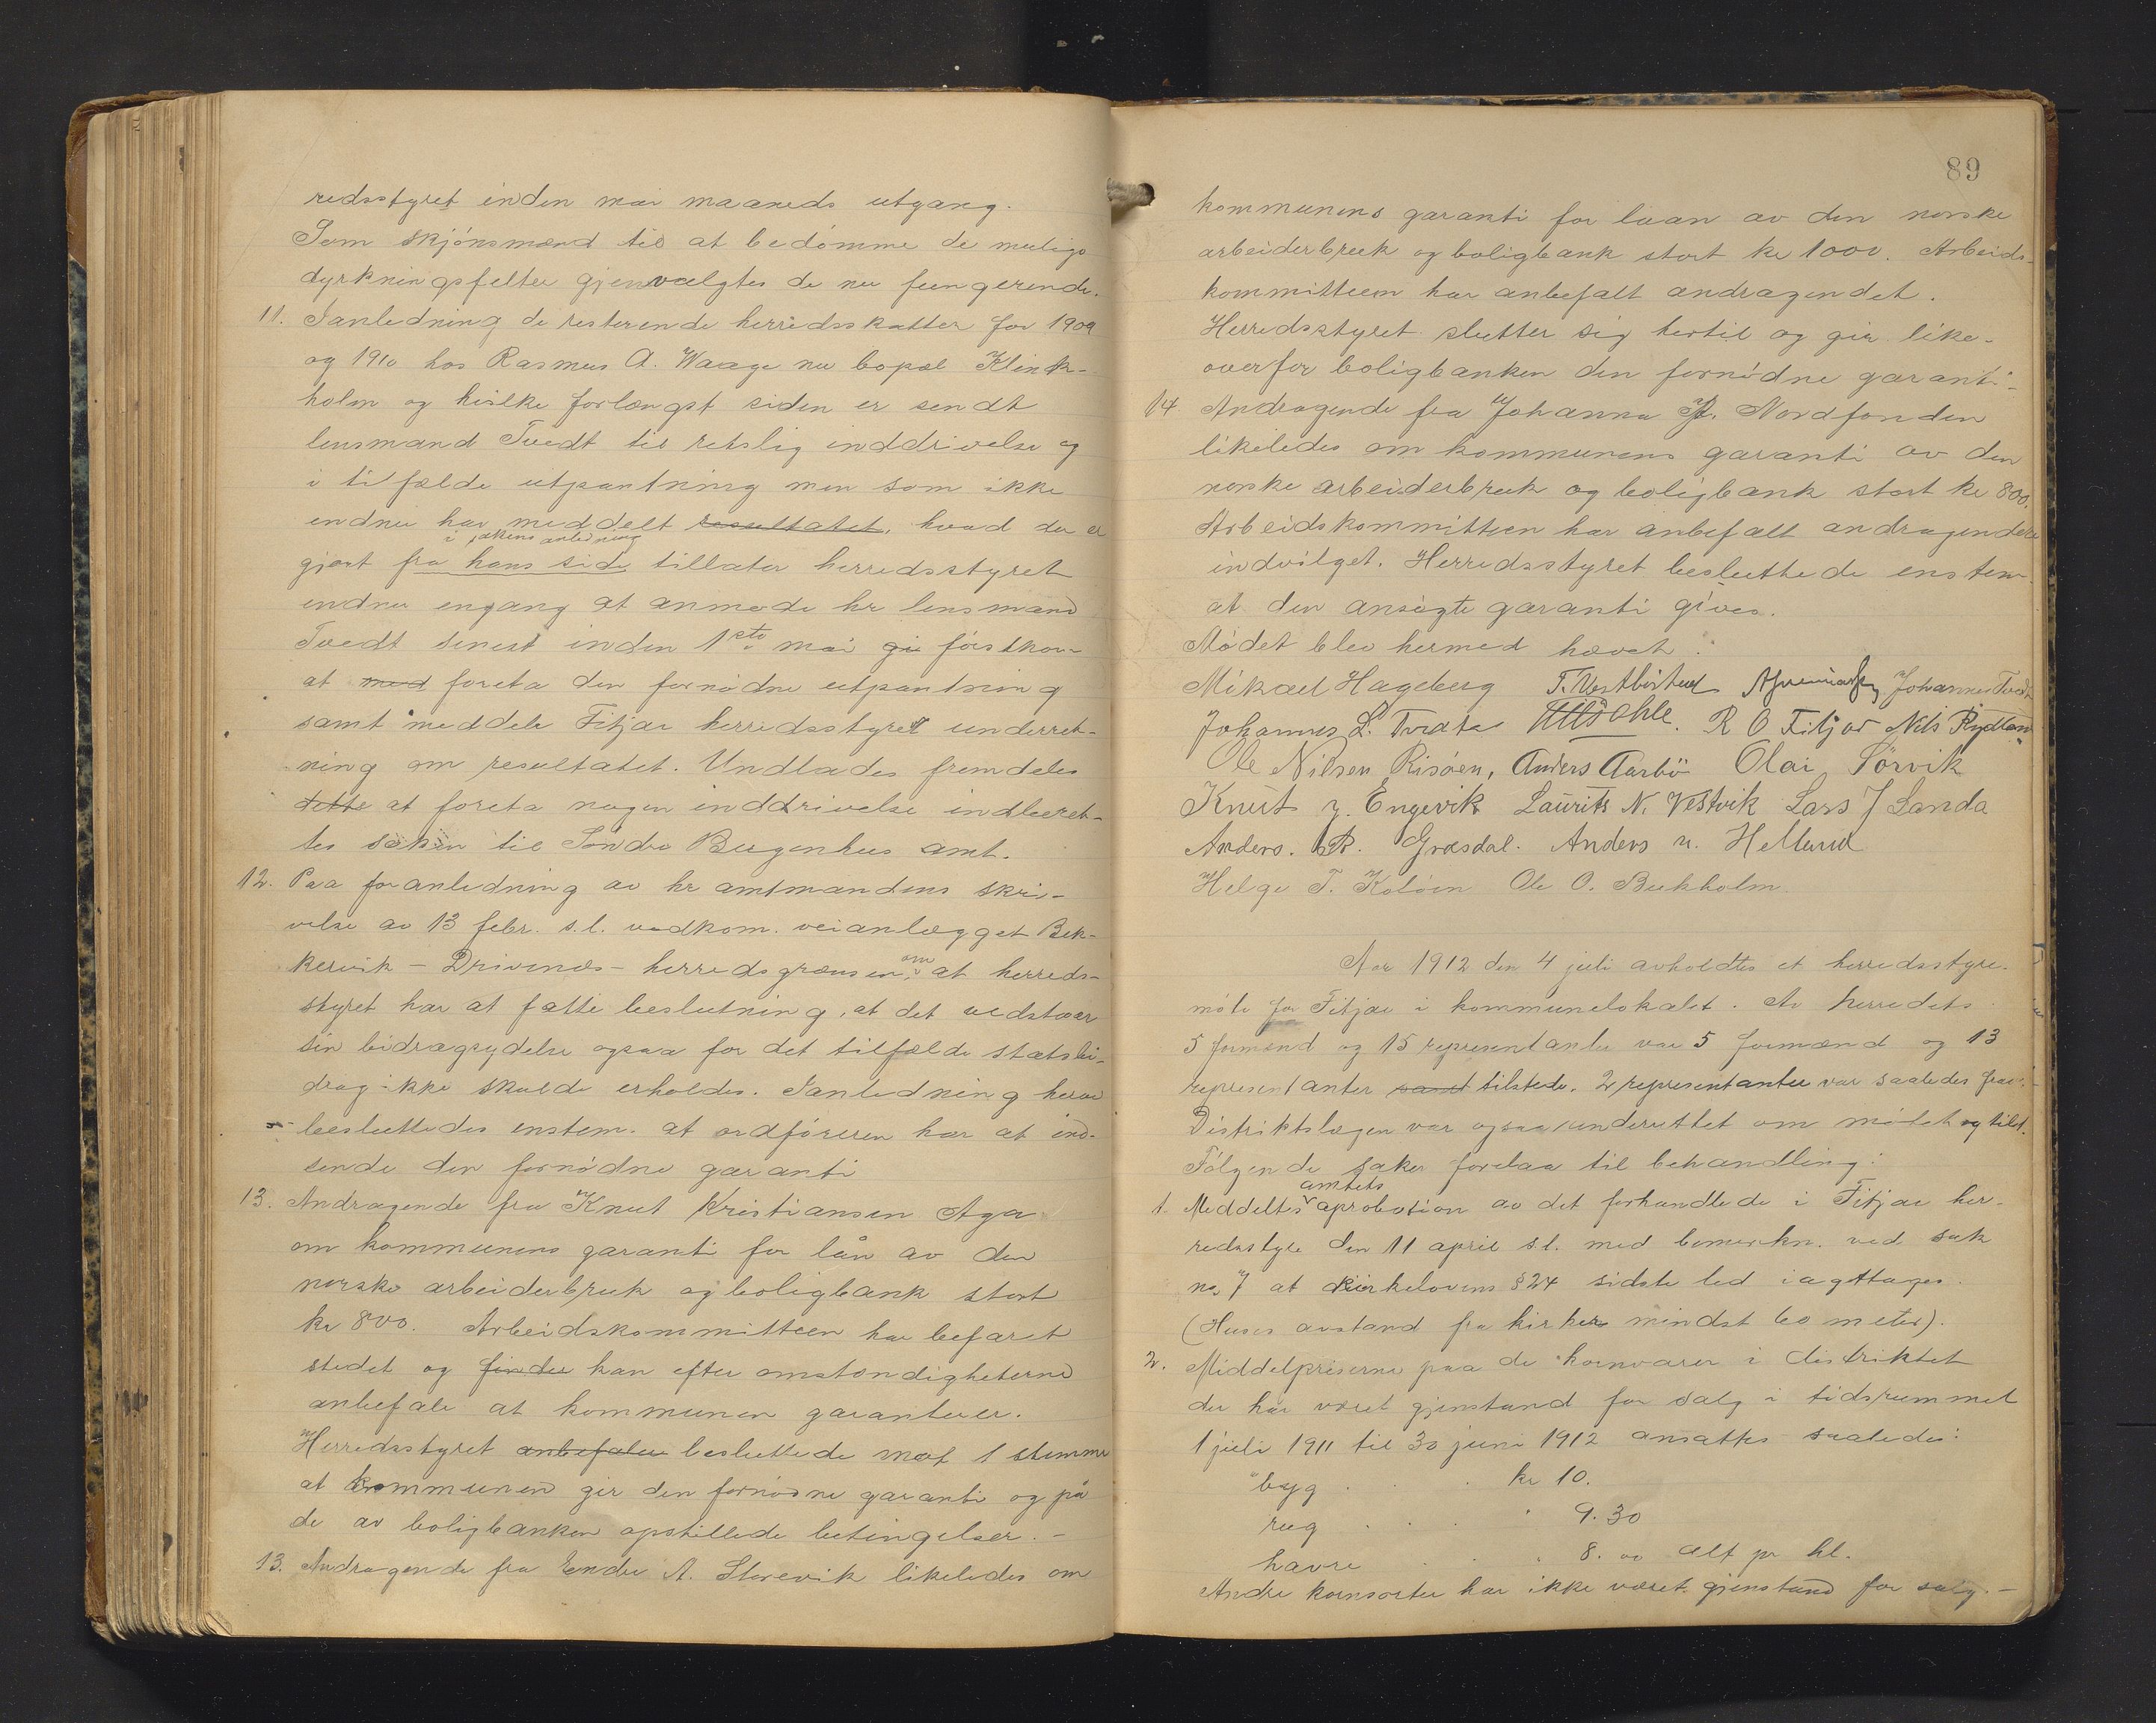 redsstyret inden mai maaneds utgang.
Som skjönsmænd til at bedömme de mulige
dyrkningsfelter gjenvælgtes de nu fungerende.
11. Ianledning de resterende herredsskatter for 1909
og 1910 hos Rasmus A. Waage nu bopæl Klink-
holm og hvilke forlængst siden er sendt
lensmand Tvedt til retslig inddrivelse og
i tilfælde utpantning men som ikke
endnu har meddelt resultatet, hvad der er
i sakens anledning
gjort fra hans side tillater herredsstyret
endnu engang at anmode hr lensmand
Tvedt senest inden 1ste mai gi förstkom-
at med foreta den fornödne utpantning
samt meddele Fitjar herredsstyret underret-
ning om resultatet. Undlades fremdeles
dette at foreta nogen inddrivelse indberet-
tes saken til Söndre Bergenhus amt.
12. Paa foranledning av hr amtmandens skri-
velse av 13 febr. s.l. vedkom. veianlægget Bek-
kervik – Drivenes – herredsgrænsen, om at herreds-
styret har at fatte beslutning, at det vedstaar
sin bidragsydelse ogsaa for det tilfælde statsbi-
drag ikke skulde erholdes. Ianledning herav
besluttedes enstem. at ordföreren har at ind-
sende den fornödne garanti
13. Andragende fra Knut Kristiansen Aga
om kommunens garanti for lån av den
norske arbeiderbruk og boligbank stort
kr 800. Arbeidskommitteen har befaret
stedet og finder kan efter omstændigheterne
anbefale at kommunen garanterer.
Herredsstyret anbefaler besluttede mot 1 stemme
at kommunen gir den fornödne garanti og på
de av boligbanken opstillede betingelser. –
13. Andragende fra Endre A. Storevik likeledes om
89
kommunens garanti for laan av den norske
arbeiderbruk og boligbank stort kr 1000. Arbeids-
kommitteen har anbefalt andragendet.
Herredsstyret slutter sig hertil og gir like-
overfor boligbanken den fornödne garanti.
14 Andragende fra Johanna Nordfonden
likeledes om kommunens garanti av den
norske arbeiderbruk og boligbank stort kr 800.
Arbeidskommitteen har anbefalt andragendet
indvilget. Herredsstyret besluttede enstem.
at den ansögte garanti gives.
Mödet blev hermed hævet.
Mikael Hageberg T. Vestböstad Johannes Tvedt
Johannes L. Tveita R O Fitjar Nils Rydland
Ole Nilsen Risöen, Anders Aarbö Olai Sörvik
Knut J. Engevik Laurits N. Vestvik Lars J Landa
Anders. R. Græsdal. Anders N. Helland
Helge T. Kolöen Ole O. Bukholm
Aar 1912 den 4 juli avholdtes et herredsstyre-
möte for Fitjar i kommunelokalet. Av herredets
5 formænd og 15 representanter var 5 formænd og 13
representanter samt tilstede. 2 representanter var saaledes frav.
Distriktslægen var ogsaa underrettet om mötet og tilst.
Fölgende saker forelaa til behandling:
1. Meddeltes amtets aprobation av det forhandlede i Fitjar her-
redsstyre den 11 april s.l. med bemerkn. ved sak
no 7 at kirkelovens § 24 sidste led iagttages.
(Huses avstand fra kirken mindst 60 meter).
2. Middelpriserne paa de kornvarer i distriktet
der har været gjenstand for salg i tidsrummet
1 juli 1911 til 30 juni 1912 ansattes saaledes:
byg . . . kr 10.
rug . . . " 9.30
havre . . . " 8.00 alt pr hl.
Andre kornsorter har ikke været gjenstand for salg. –